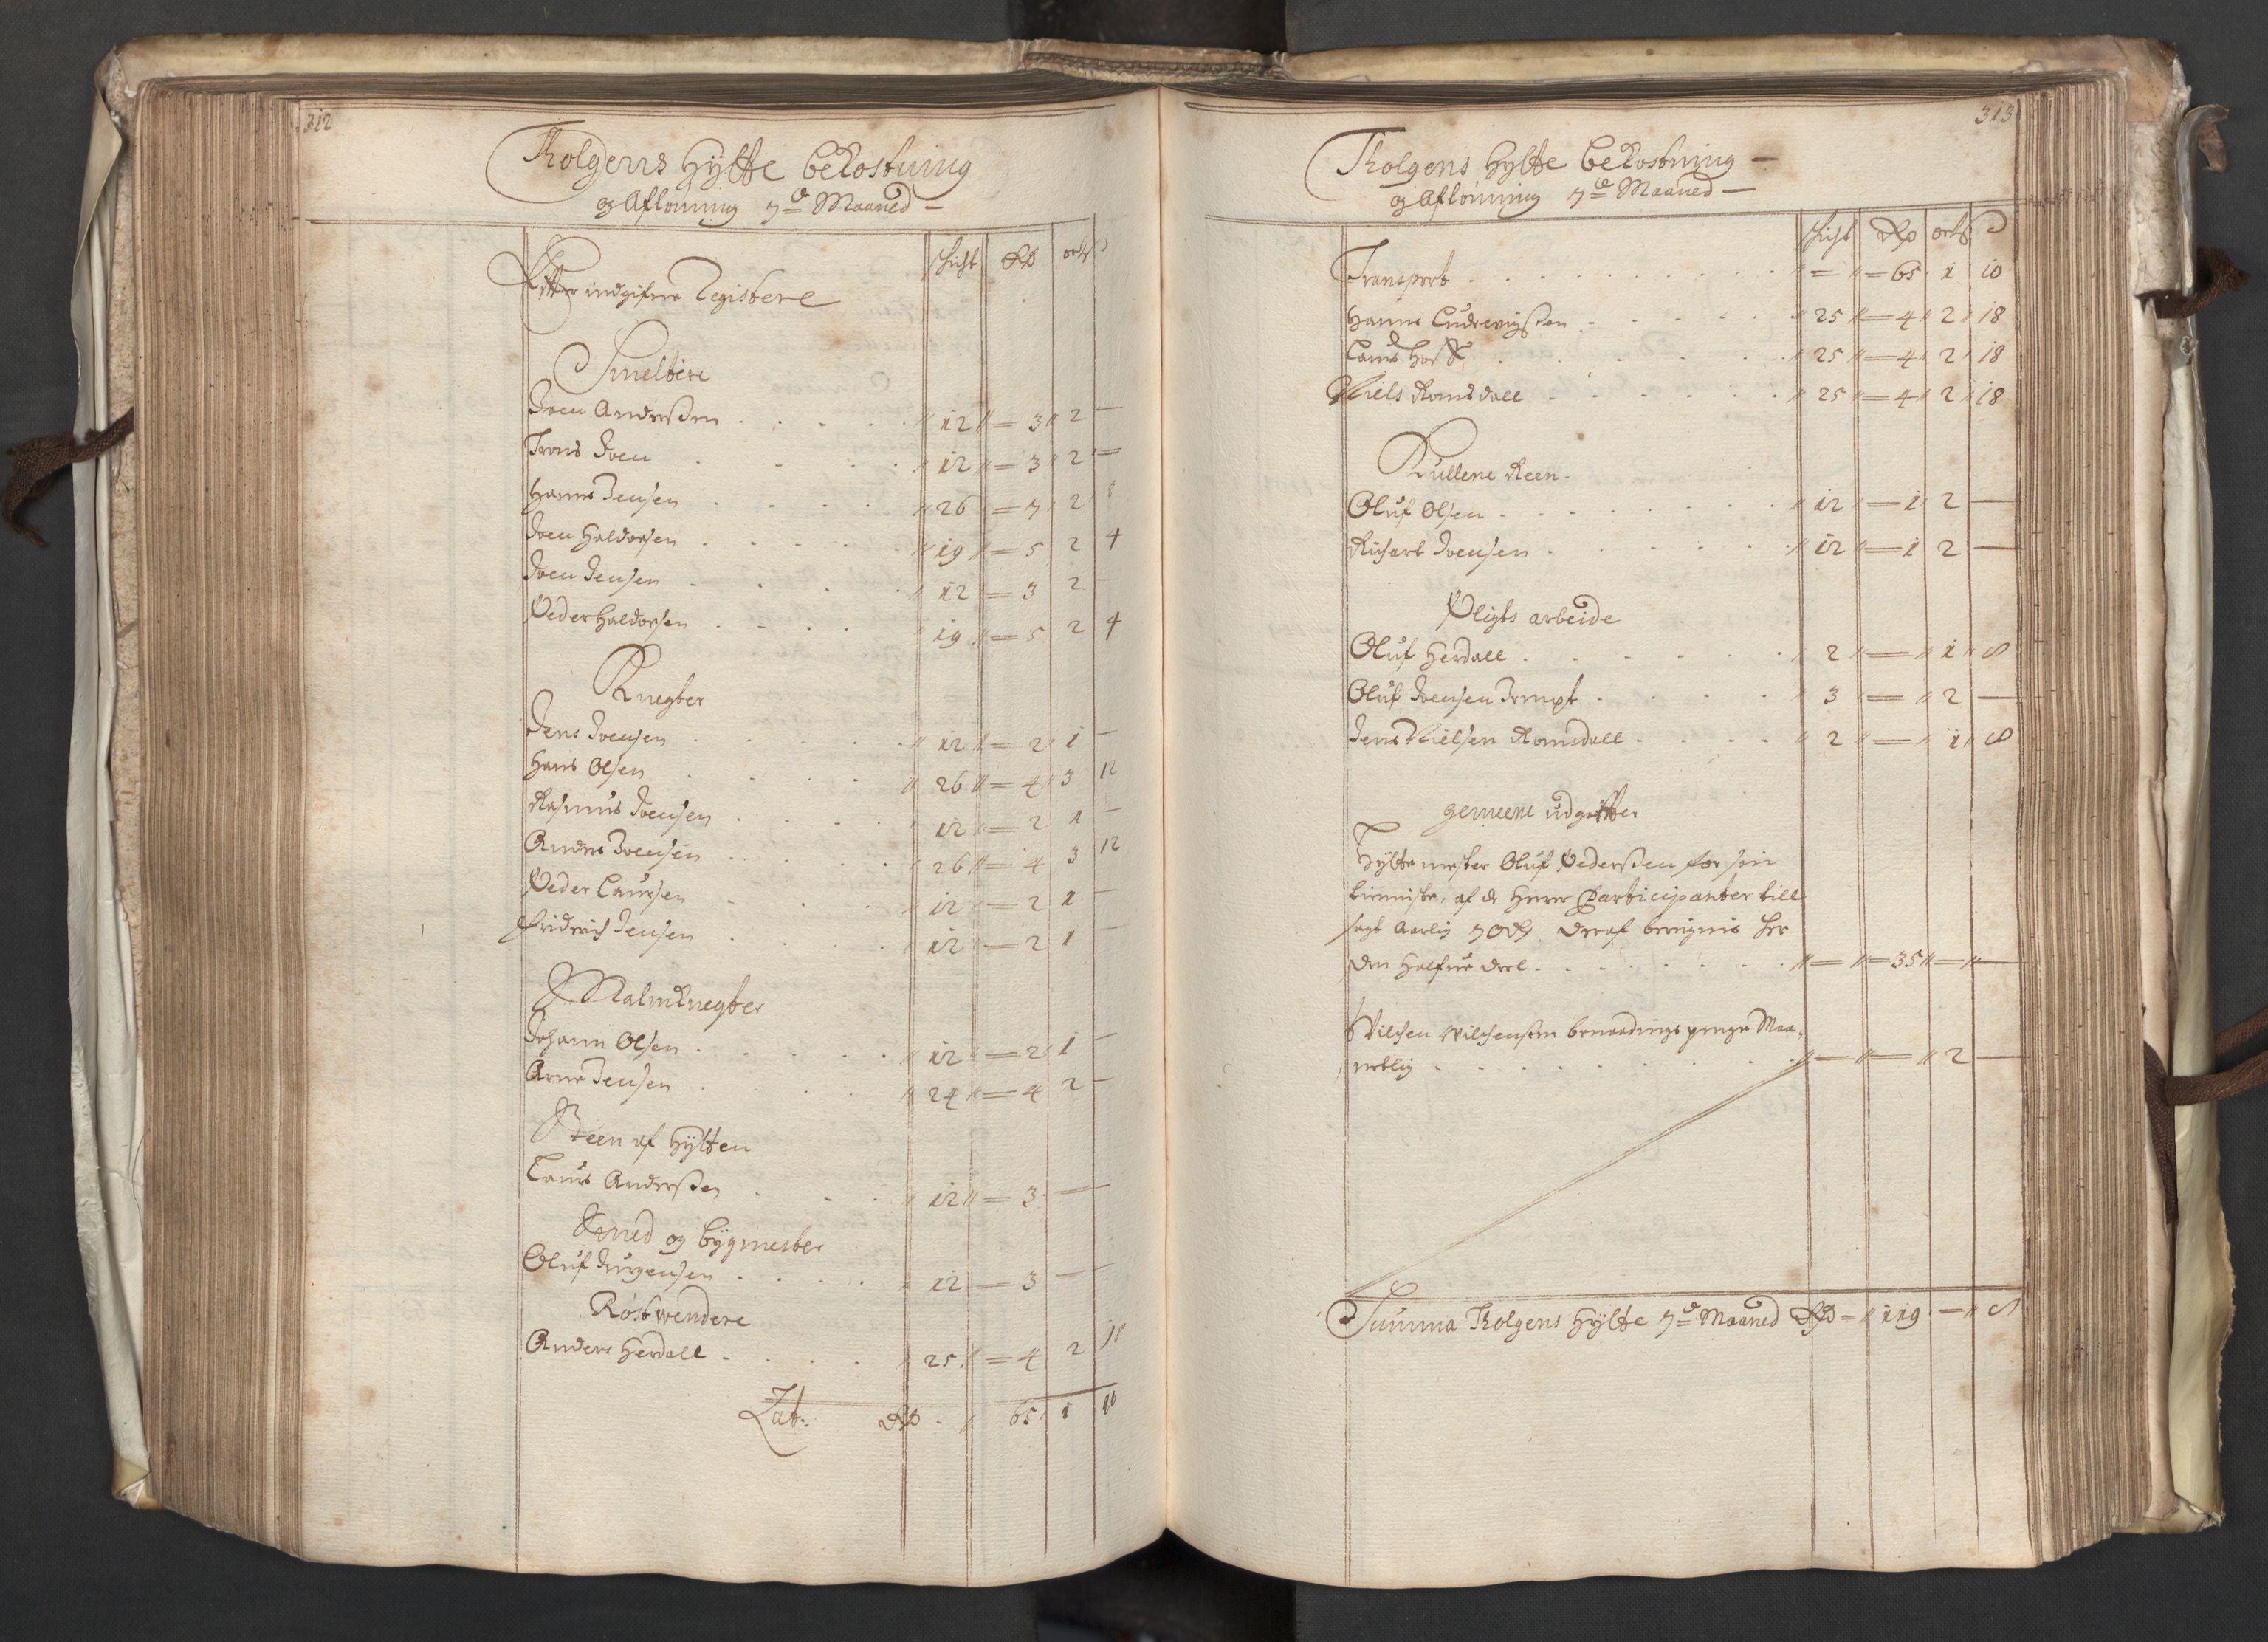 312
Tholgens Hytte bekostning
og Aflønning 7de Maaned
Schicht Rd ort s
Efter indgifne Registere
Smeltere
Joen Anderssen 12 3 2 —
Trons Joen 12 3 2 —
Hanns Jensen 26 7 2 8
Joen Haldorsen 19 5 2 4
Joen Jensen 12 3 2 —
Peder Haldorsen 19 5 2 4
Knegter
Jens Joensen 12 2 1 —
Hans Olsen 26 4 3 12
Rasmus Joensen 12 2 1 —
Anders Joensen 26 4 3 12
Peder Laursen 12 2 1 —
Fridrich Jensen 12 2 1 —
Malmknegter
Johann Olsen 12 2 1 —
Arne Jensen 24 4 2 —
Steen af Hytten
Laurs Anderssen 12 3 —
Smed og bygmester
Oluf Jurgensen 12 3 —
Røstwendere
Anders Herdall 25 4 2 18
Lat: Rd 65 1 10
313
Tholgens Hytte bekostning —
og Aflønning 7de Maaned —
Schicht Rd ort s
Transport — 65 1 10
Hanns Ludewigssen 25 4 2 18
Laurs Hoff 25 4 2 18
Niels Romsdall 25 4 2 18
Kullene Reen.
Oluf Olsen 12 1 2 —
Richart Joensen 12 1 2 —
Pligts arbeide
Oluf Herdall 2 — 1 8
Oluf Joensen 3 — 2 —
Jens Nielsen Romsdall 2 — 1 8
gemeene udgifter
Hyttemester Oluf Pederssen for sin
tienniste, af de Herrer Participanter till
sagt Aarlig 70 Rd. Deraf beregnis her
den halfue deel — 35 — —
Wilchen Wilchenssen benaadings penge Maa-
netlig — — 2 —
Summa Tholgens Hytte 7de Maaned Rd — 119 — 8